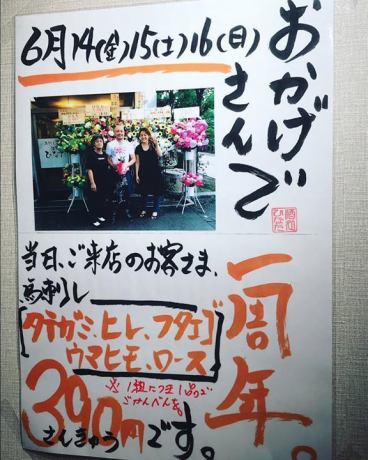 おかげで
さんで
一周年。
6月14(金)15(土)16(日)
当日、ご来店のお客さま、
馬刺し
[タテガミ、ヒレ、フタエゴ
ウマヒモ、ロース]
※1組につき1品で
ごかんべんを。
390円です。
さんきゅう